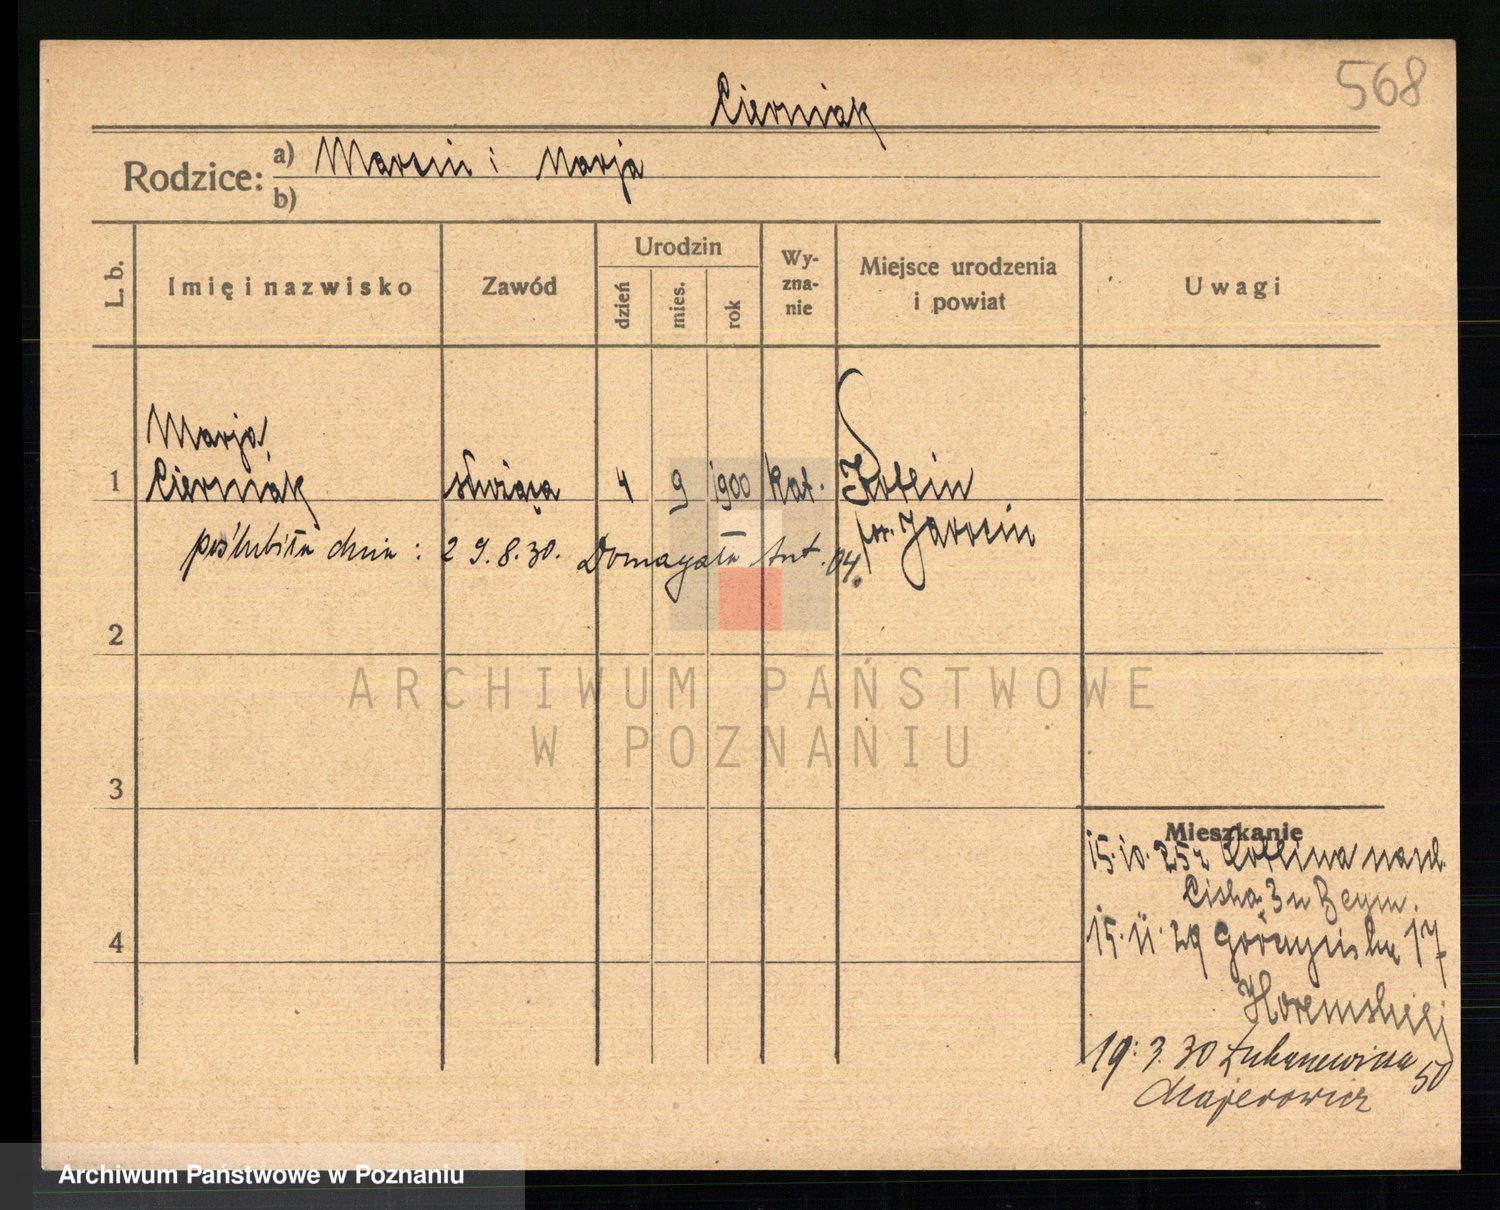 568
Cierniak
Rodzice: a) Marcin i Marja
b)
L. b. Imię i nazwisko Zawód Urodzin dzień mies. rok Wy-zna-nie Miejsce urodzenia i powiat Uwagi
Marja
1 Cierniak służąca 4 9 1900 kat. Kotlin
pow. Jarocin
poślubiła dnia: 29.8.30. Domagała Ant. 04.
2
ARCHIWUM PAŃSTWOWE
W POZNANIU
3
Mieszkanie
15.10.25r Kotlina
Cicha 3 u Beym.
4
15.11.29 Górczyńska 17
19.3.30 Łukaszewicza 50
Majerowicz
Archiwum Państwowe w Poznaniu